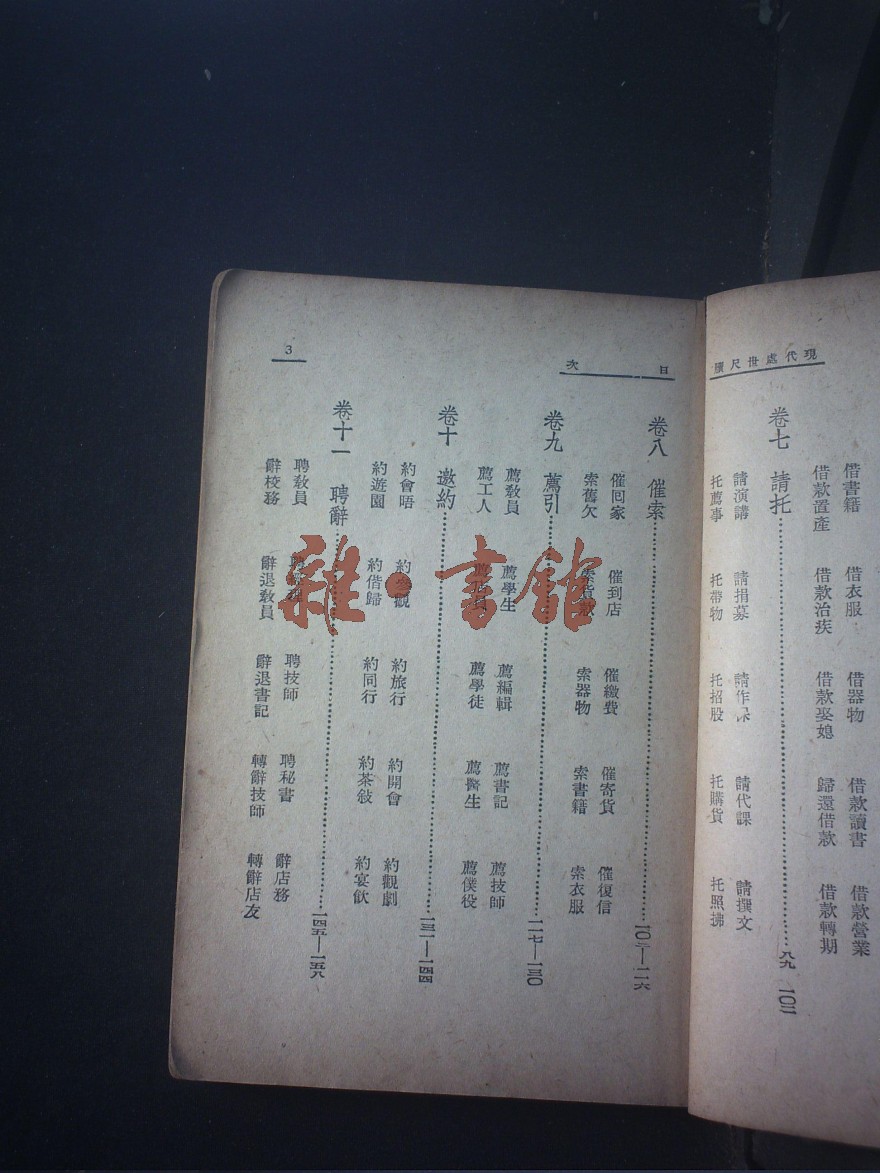 現代處世尺牘
借書籍 借衣服 借器物 借款讀書 借款營業
借款置產 借款治疾 借款娶媳 歸還借款 借款轉期
卷七 請托 八九 一〇二
請演講 請捐募 請作保 請代課 請撰文
托薦事 托帶物 托招股 托購貨 托照拂
目次
卷八 催索 一〇二—一一六
催回家 催到店 催繳費 催寄貨 催復信
索舊欠 索貨款 索器物 索書籍 索衣服
卷九 薦引 一一七—一三〇
薦教員 薦學生 薦編輯 薦書記 薦技師
薦工人 薦學徒 薦醫生 薦僕役
卷十 邀約 一三一—一四四
約會晤 約參觀 約旅行 約開會 約觀劇
約遊園 約偕歸 約同行 約茶敍 約宴飲
卷十一 聘辭 一四五—一五八
聘教員 聘技師 聘秘書 辭店務
辭校務 辭退教員 辭退書記 轉辭技師 轉辭店友
3
雜·書館